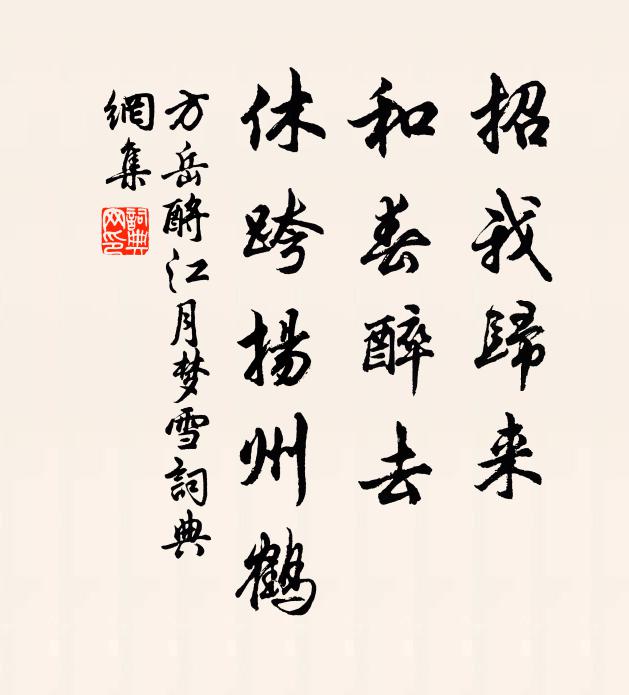 招我歸来
和春醉去
休跨揚州鶴
方岳酹江月梦雪詞典
網集
詞典网印